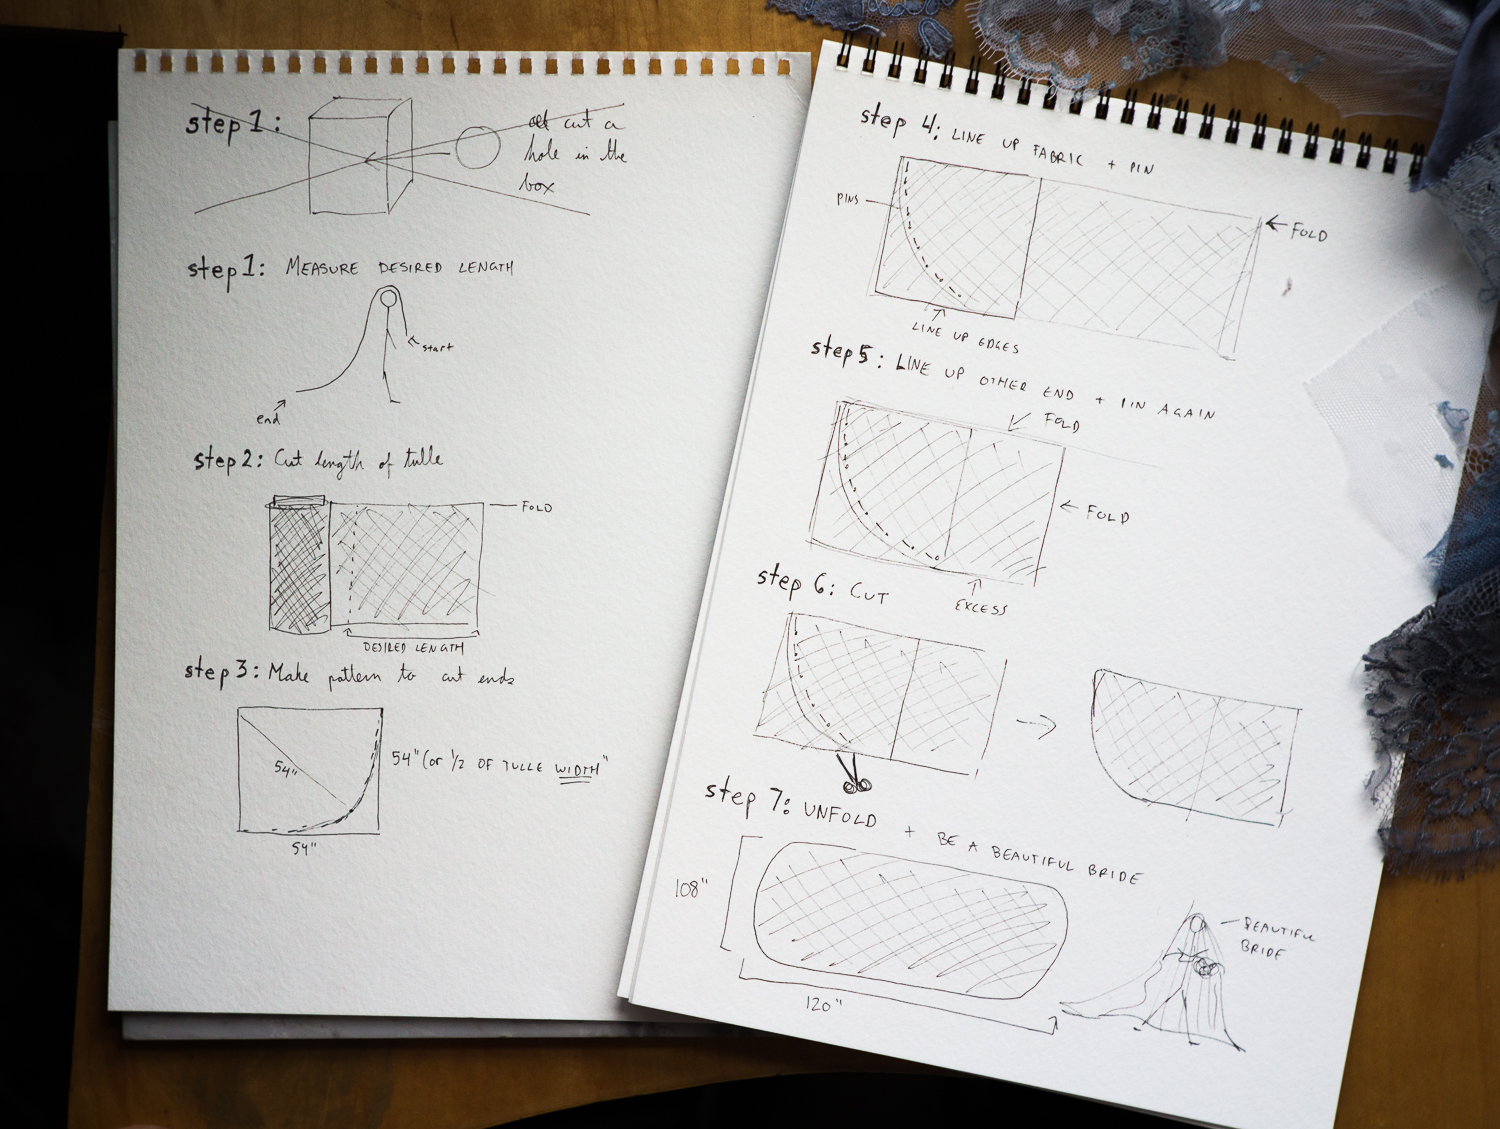 step 1:
cut a
hole in the
box
step 1: MEASURE DESIRED LENGTH
start
end
step 2: Cut length of tulle
FOLD
DESIRED LENGTH
step 3: Make pattern to cut ends
54"
54" (or 1/2 OF TULLE WIDTH"
54"
step 4: LINE UP FABRIC + PIN
PINS
FOLD
LINE UP EDGES
step 5: LINE UP OTHER END + PIN AGAIN
FOLD
FOLD
EXCESS
step 6: CUT
step 7: UNFOLD + BE A BEAUTIFUL BRIDE
108"
BEAUTIFUL
BRIDE
120"